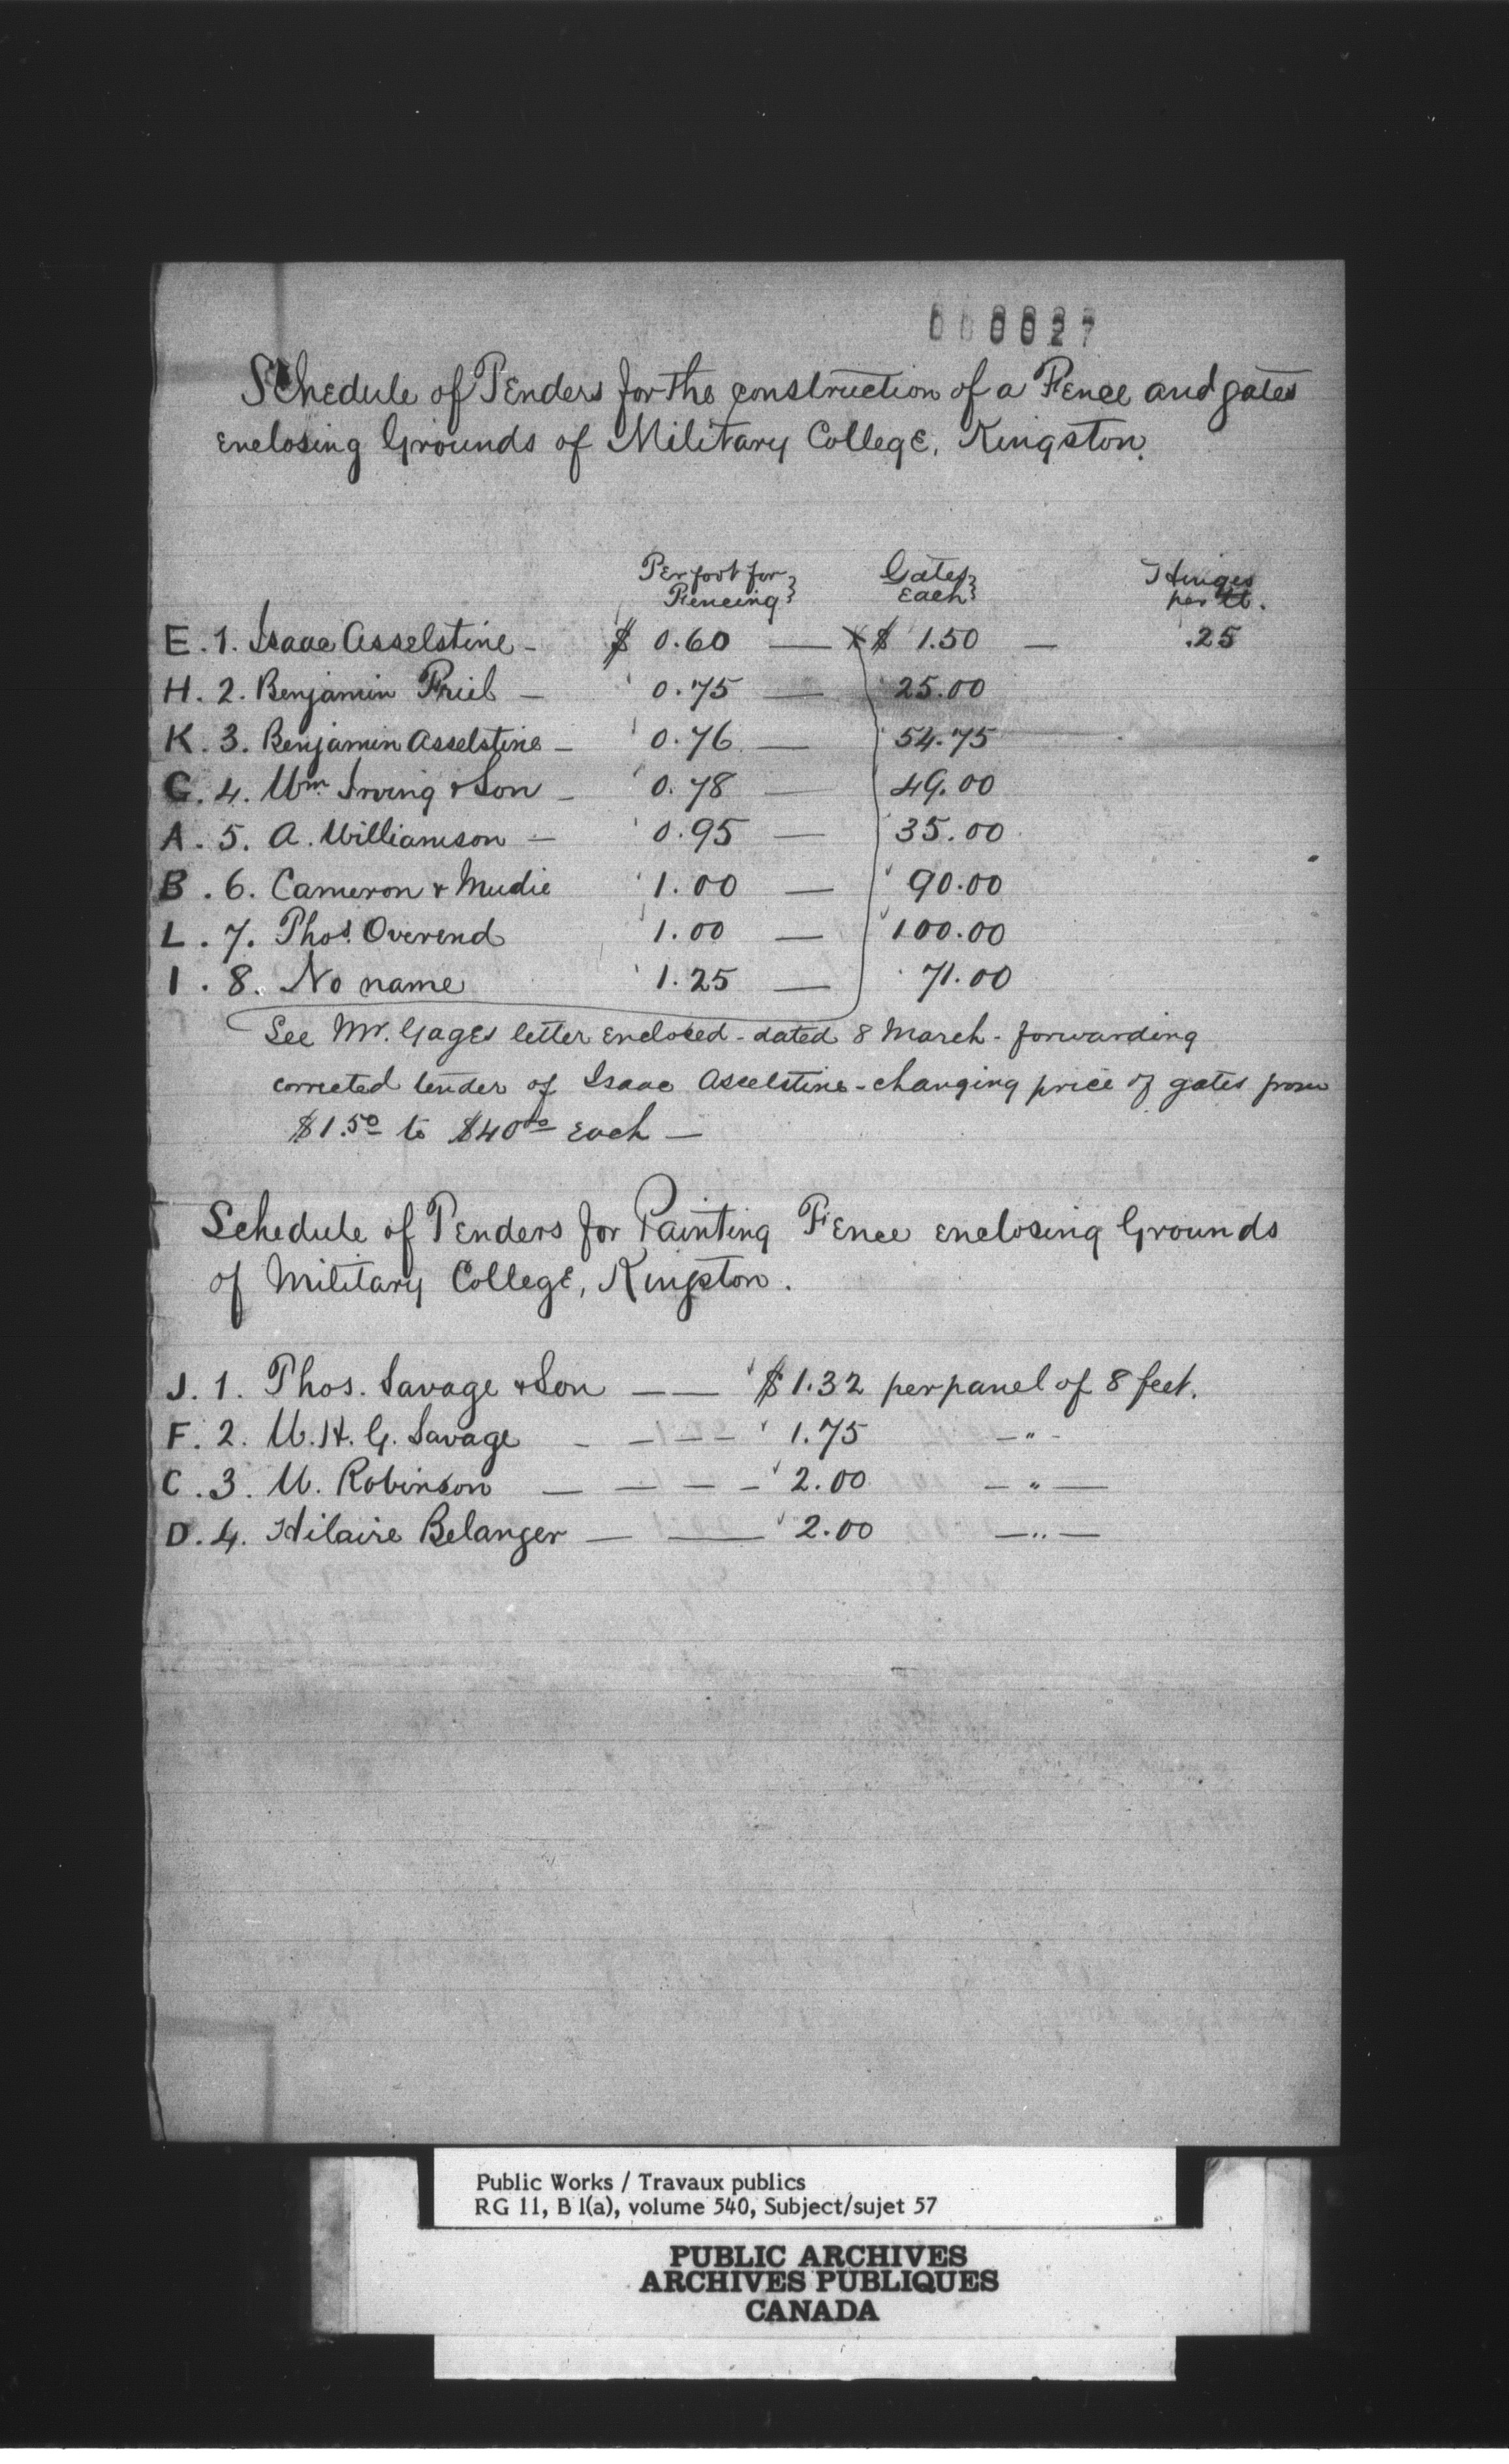 000027
Schedule of Tenders for the construction of a Fence and gates
enclosing Grounds of Military College, Kingston.
Per foot for Fencing Gates Each Hinges per lb.
E. 1. Isaac Asselstine - $ 0.60 — x $ 1.50 — .25
H. 2. Benjamin Friel — 0.75 — 25.00
K. 3. Benjamin Asselstine - 0.76 — 54.75
G. 4. Wm. Irving & Son - 0.78 — 49.00
A. 5. A. Williamson - 0.95 — 35.00
B. 6. Cameron & Mudie 1.00 — 90.00
L. 7. Thos. Overend 1.00 — 100.00
I. 8. No name 1.25 — 71.00
See Mr. Gages letter enclosed - dated 8 March - forwarding
corrected tender of Isaac Asselstine - changing price of gates from
$1.50 to $40.00 each —
Schedule of Tenders for Painting Fence enclosing Grounds
of Military College, Kingston.
J. 1. Thos. Savage & Son — — $ 1.32 per panel of 8 feet.
F. 2. W. H. G. Savage - — — - 1.75 — " -
C. 3. W. Robinson — — - - - 2.00 — " —
D. 4. Hilaire Belanger — — 2.00 — " —
Public Works / Travaux publics
RG 11, B 1(a), volume 540, Subject/sujet 57
PUBLIC ARCHIVES
ARCHIVES PUBLIQUES
CANADA